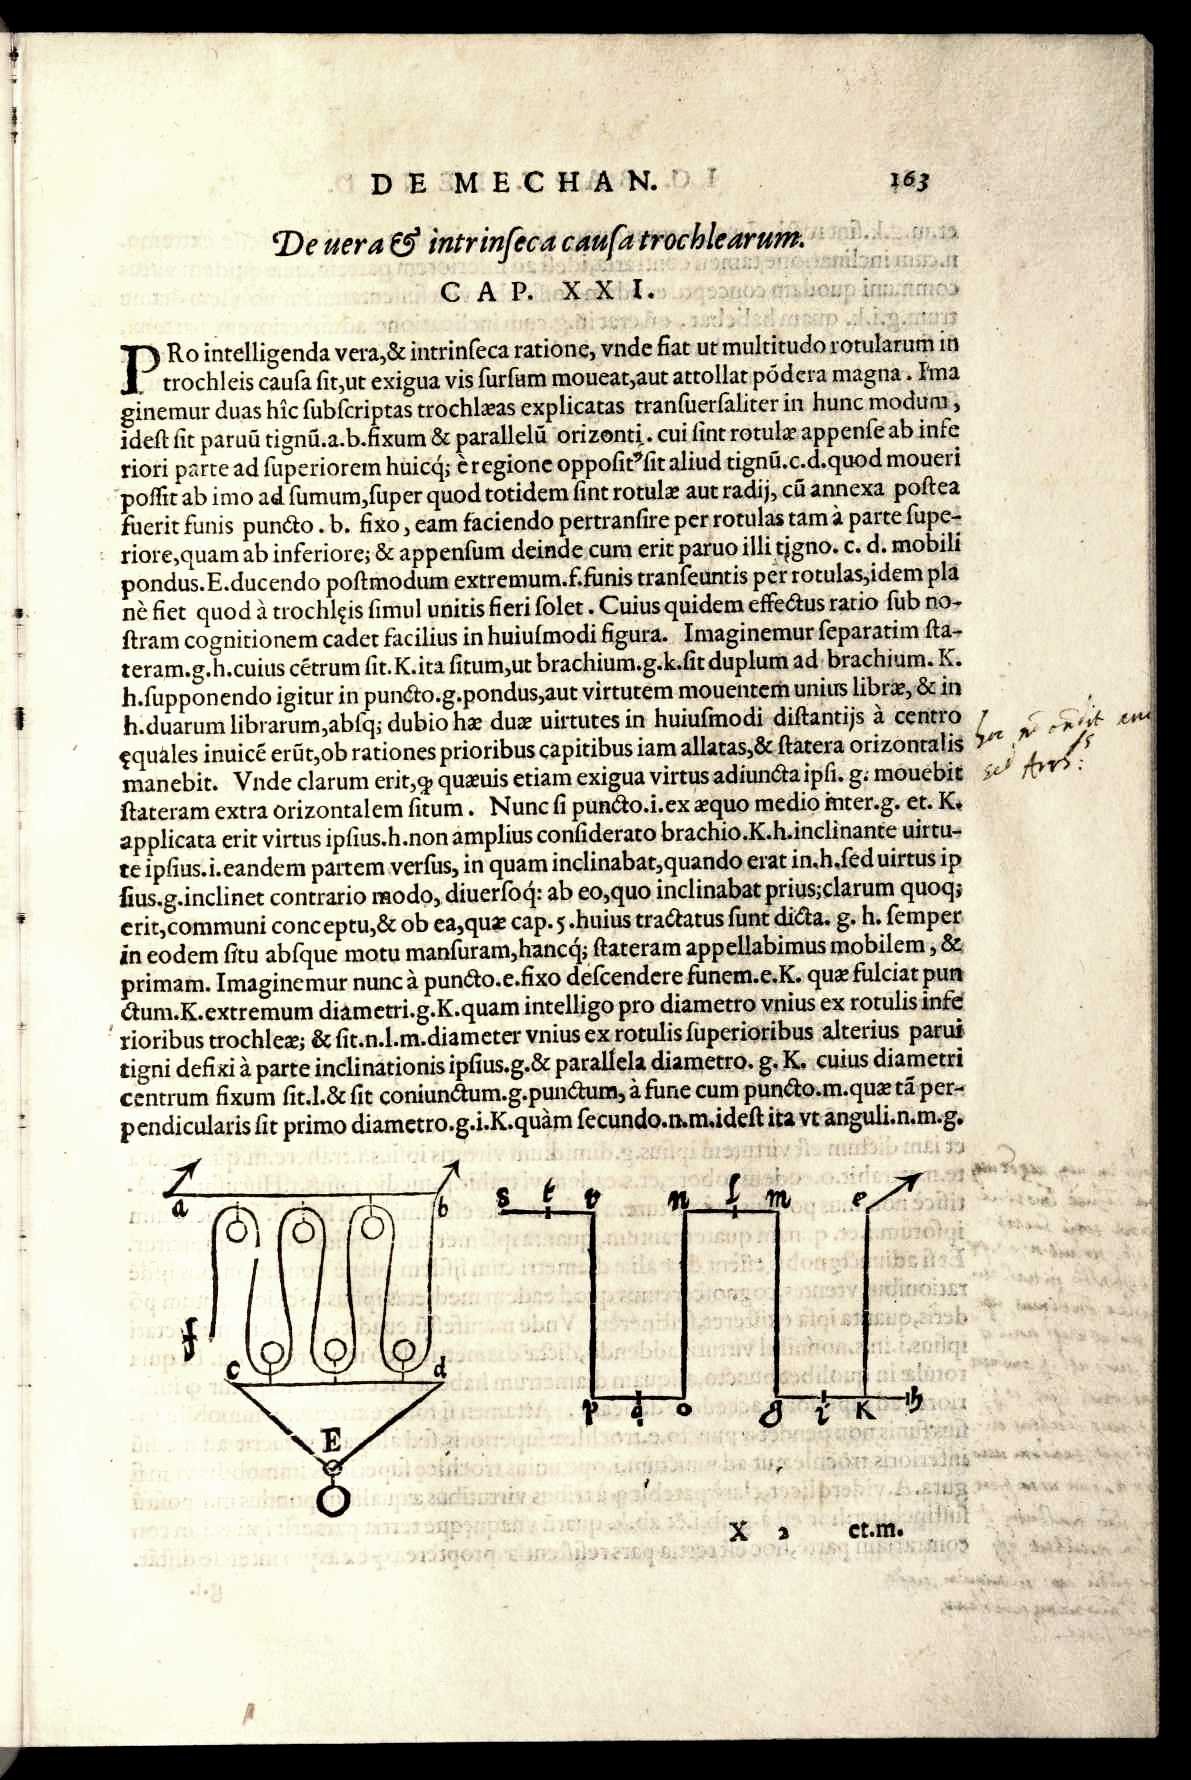 DE MECHAN. 163
De uera & intrinſeca cauſa trochlearum.
CAP. XXI.
PRo intelligenda vera,& intrinſeca ratione, vnde fiat ut multitudo rotularum in
trochleis cauſa ſit,ut exigua vis ſurſum moueat,aut attollat põdera magna. Ima
ginemur duas hîc ſubſcriptas trochlæas explicatas tranſuerſaliter in hunc modum,
ideſt ſit paruũ tignũ.a.b.fixum & parallelũ orizonti. cui ſint rotulæ appenſe ab infe
riori parte ad ſuperiorem huicq́; è regione oppoſitꝰ ſit aliud tignũ.c.d.quod moueri
poſſit ab imo ad ſumum,ſuper quod totidem ſint rotulæ aut radij, cũ annexa poſtea
fuerit funis puncto.b. fixo, eam faciendo pertranſire per rotulas tam à parte ſupe-
riore,quam ab inferiore; & appenſum deinde cum erit paruo illi tigno. c. d. mobili
pondus.E.ducendo poſtmodum extremum.f.funis tranſeuntis per rotulas,idem pla
nè fiet quod à trochlęis ſimul unitis fieri ſolet. Cuius quidem effectus ratio ſub no-
ſtram cognitionem cadet facilius in huiuſmodi figura. Imaginemur ſeparatim ſta-
teram.g.h.cuius cẽtrum ſit.K.ita ſitum,ut brachium.g.k.ſit duplum ad brachium. K.
h.ſupponendo igitur in puncto.g.pondus,aut virtutem mouentem unius libræ, & in
h.duarum librarum,abſq; dubio hæ duæ uirtutes in huiuſmodi diſtantijs à centro
ęquales inuicẽ erũt,ob rationes prioribus capitibus iam allatas,& ſtatera orizontalis
manebit. Vnde clarum erit,ꝙ quæuis etiam exigua virtus adiuncta ipſi. g. mouebit
ſtateram extra orizontalem ſitum. Nunc ſi puncto.i.ex æquo medio inter.g. et. K.
applicata erit virtus ipſius.h.non amplius conſiderato brachio.K.h.inclinante uirtu-
te ipſius.i.eandem partem verſus, in quam inclinabat,quando erat in.h.ſed uirtus ip
ſius.g.inclinet contrario modo, diuerſoq́: ab eo,quo inclinabat prius;clarum quoq;
erit,communi conceptu,& ob ea,quæ cap.5.huius tractatus ſunt dicta. g. h. ſemper
in eodem ſitu abſque motu manſuram,hancq́; ſtateram appellabimus mobilem, &
primam. Imaginemur nunc à puncto.e.fixo deſcendere funem.e.K. quæ fulciat pun
ctum.K.extremum diametri.g.K.quam intelligo pro diametro vnius ex rotulis infe
rioribus trochleæ; & ſit.n.l.m.diameter vnius ex rotulis ſuperioribus alterius parui
tigni defixi à parte inclinationis ipſius.g.& parallela diametro. g. K. cuius diametri
centrum fixum ſit.l.& ſit coniunctum.g.punctum, à fune cum puncto.m.quæ tã per-
pendicularis ſit primo diametro.g.i.K.quàm ſecundo.n.m.ideſt ita vt anguli.n.m.g.
a b s t v n l m e
f c d E p q o g i K h
X 2 et.m.